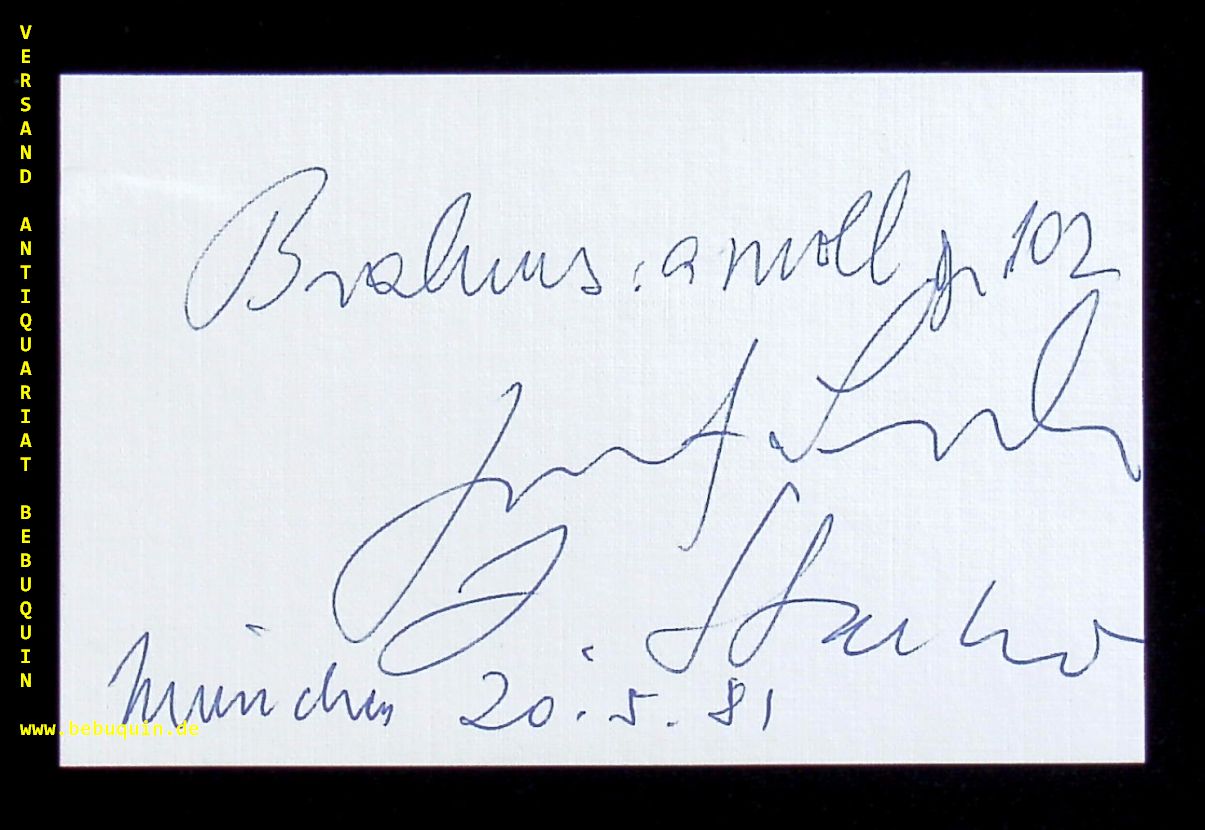 VERSAND ANTIQUARIAT BEBUQUIN
Brahms: a moll op 102
Josef Suk
J. Starker
München 20.5.81
www.bebuquin.de